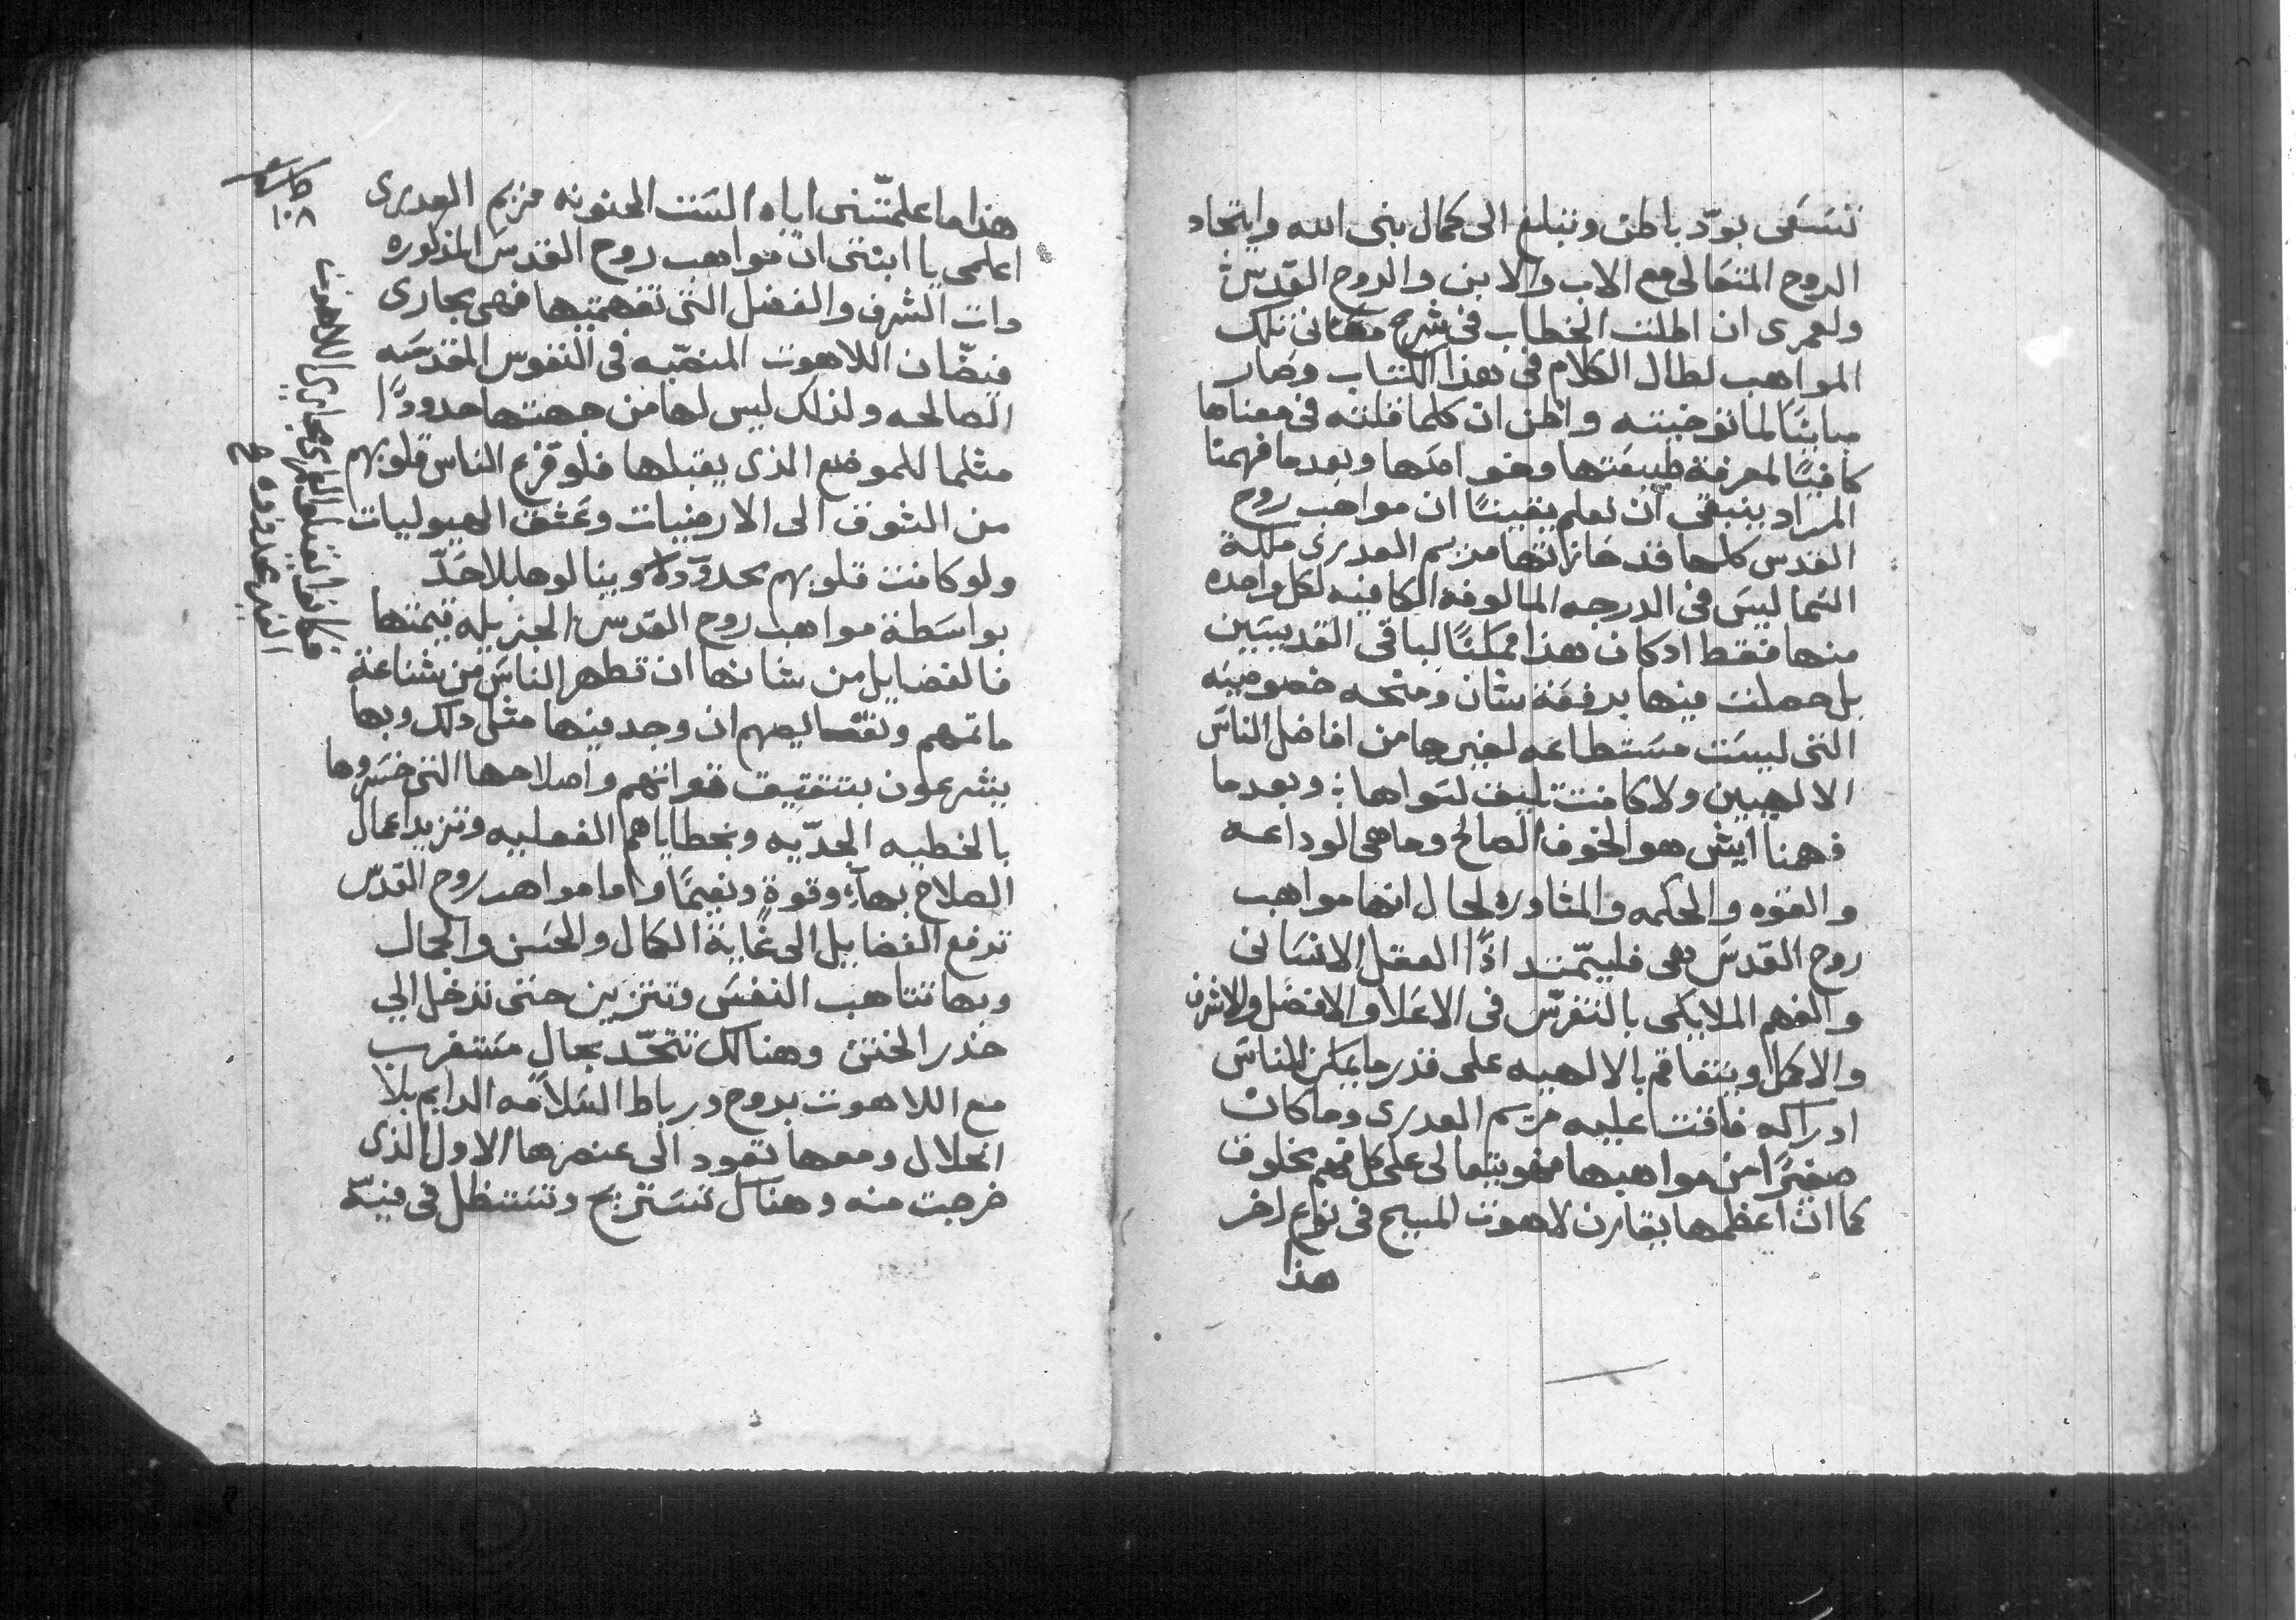 تسَعَى بودّ باطن وتبلغ الى كمال بنى الله وايتحاد
الروح المتعالى مع الاب والابن والروح القدسَ
ولعمرى ان اطلت الخطاب فى شرح معانى تلك
المواهب لطال الكلام فى هذا الكتاب وصار
مباينًا لما توخيته واظن ان كلما قلته فى معناها
كافيًا لمعرفة طبيعَتها وخواصَها وبعدما فهمنا
المراد ينبغى ان نعلم يقينًا ان مواهب روح
القدس كلها قد حازاتها مريم العدرى ملكة
السَما ليسَ فى الدرجه المالوفه الكافيه لكل واحده
منها فقط ادكان هذا ممكنًا لباقى القديسَين
بل حصلت فيها برفعَة شان ومنحه خصوصيه
التى ليسَت مسَتطاعَه لغيرها من افاضل الناسَ
الالهيين ولا كانت تليق لسَواها : وبعدما
فهمنا ايش هو الخوف الصالح وما هى الوداعه
والقوه والحكمه والمشاوره لحال انها مواهب
روح القدسَ هى فليمّتد ادًا العقل الانسَانى
والفهم الملايكى بالتفرّسَ فى الاعَلا والافضَل والاشرف
والاكمل ويتفاقم بالالهيه على قدر ما يمكن للناسَ
ادراكه فافت عليه مريم العدرى وما كان
صغيرًا من مواهبها فهو يتعالى على كل فهم مخلوق
كما ان اعظمها يقارن لاهوت المسيح فى نوع اخر
هذا
هذا ما علمتّنى اياه السَت الحنونه مريم العدرى
اعلمى يا ابنتى ان مواهب روح القدسَ المذكوره
دات الشرف والفضل التى تفهميها فهى مجارى
فيضَان اللاهوت المنصَبّه فى النفوس المقدسَه
الصالحه ولذلك ليس لها من جهتها حدودًا
مثلما للموضع الذى يقبلها فلو فرّغ الناس قلوبهم
من الشوق الى الارضيات وعَشق الهيوليات
ولو كانت قلوبهم محدوده وينالوها بلا حَدّ
بواسَطة مواهب روح القدسَ الجزيله قيمتها
فالفضايل من شانها ان تطهر الناسَ من شناعة
ماتمهم ونقصايصهم ان وجد فيها مثل دلك وبها
يشرعون بتتقيف قواتهم واصلاحها التى خسَروها
بالخطيه الجدّيه وبخطاياهم الفعليه وتزيد اعمال
الصلاح بهآء وقوة ونعيمًا واما مواهب روح القدسّ
ترفع الفضايل الى غاية الكمال والحسَن والجمال
وبها تتاهب النفسَ وتتزين حتى تدخل الي
خدر الختن وهنالك تتحّد بحال مسَتغرب
مع اللاهوت بروح ورباط السَلامَه الدايم بلا
انحلال ومعها تعود الى عنصرها الاول الذى
خرجت منه وهناك تسَتريح وتسَتظل فى فيّه
١٠٨